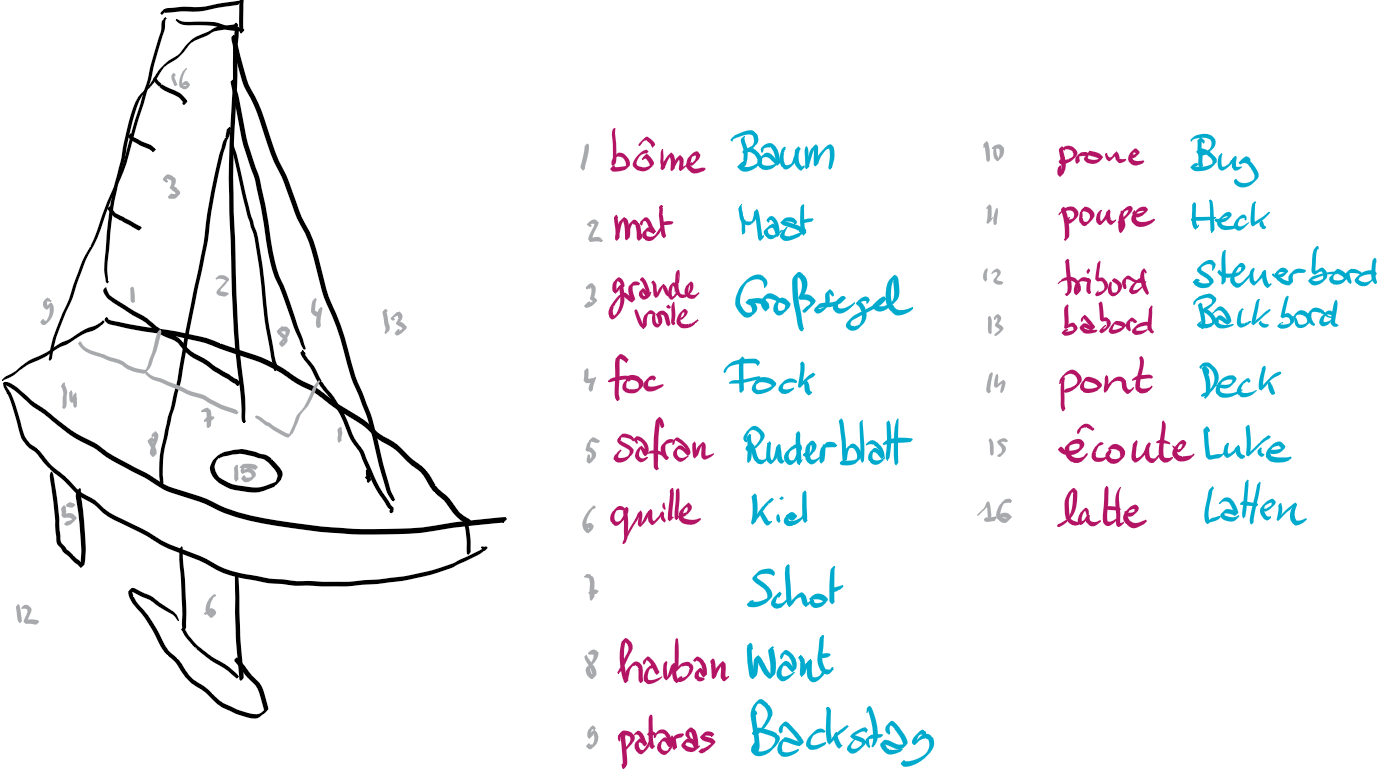 16
3
9
1
2
8
4
13
14
7
8
1
15
5
12
6
1 bôme Baum
2 mat Mast
3 grande voile Großsegel
4 foc Fock
5 safran Ruderblatt
6 quille Kiel
7 Schot
8 hauban Want
9 pataras Backstag
10 proue Bug
11 poupe Heck
12 tribord Steuerbord
13 babord Backbord
14 pont Deck
15 écoute Luke
16 latte Latten